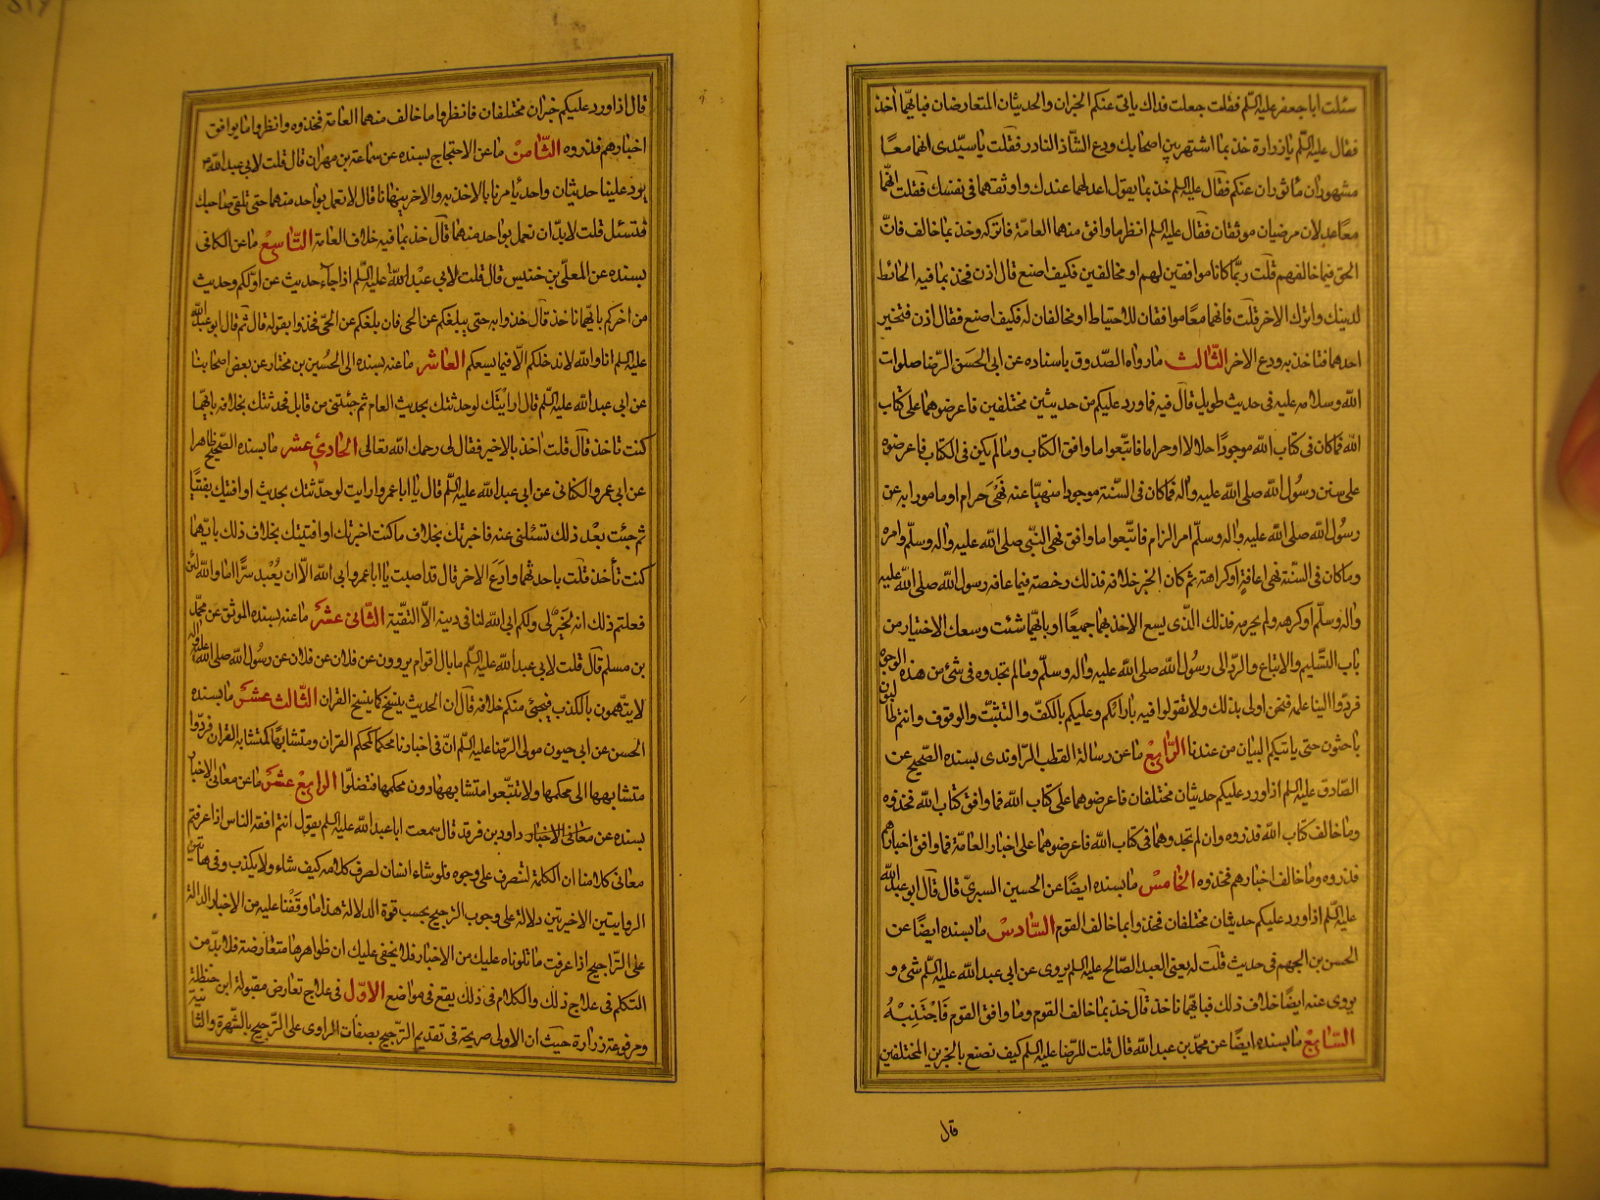 سئلت ابا جعفر عليه السّلم فقلت جعلت فداك ياتى عنكم الخبران والحديثان المتعارضان فبايّهما اخذ
فقال عليه السّلم يا زرارة خذ بما اشتهر بين اصحابك ودع الشّاذ النادر فقلت يا سيّدى انهما معًا
مشهوران ماثوران عنكم فقال عليه السلم خذ بما يقول اعدلهما عندك واوثقهما فى نفسك فقلت انّهما
معًا عدلان مرضيان موثقان فقال عليه السلم انظر ما وافق منهما العامّة فاتركه وخذ بما خالف فانّ
الحق فيما خالفهم قلت ربّما كانا موافقين لهم او مخالفين فكيف اصنع قال اذن فخذ بما فيه الحائط
لدينك واترك الاخر قلت فانهما معًا موافقان للاحتياط او مخالفان له فكيف اصنع فقال اذن فتخير
احدهما فتاخذ به ودع الاخر الثّالث ما رواه الصّدوق باسناده عن ابى الحسن الرّضا صلوات
الله وسلامه عليه فى حديث طويل قال فيه فما ورد عليكم من حديثين مختلفين فاعرضوهما على كتاب
الله فما كان فى كتاب الله موجودًا حلالا او حراما فاتّبعوا ما وافق الكتاب وما لم يكن فى الكتاب فاعرضوه
على سنن رسول الله صلى الله عليه واله فما كان فى السّنة موجودا منهيّا عنه نهى حرام او مامورا به عن
رسول الله صلى الله عليه واله وسلّم امر الزام فاتّبعوا ما وافق نهى النبّى صلى الله عليه واله وسلّم وامره
وما كان فى السّنة نهى اعافة او كراهة ثم كان الخبر خلافه فذلك رخصة فيما عافه رسول الله صلى الله عليه
واله وسلّم او كرهه ولم يحرمه فذلك الّذى يسع الاخذ بهما جميعًا او بايّهما شئت وسعك الاختيار من
باب التّسليم والاتباع والردّ الى رسول الله صلى الله عليه واله وسلّم وما لم تجدوه فى شئ من هذه الوجوه
فردّوا الينا علمه فنحن اولى بذلك ولا تقولوا فيه بارائكم وعليكم بالكفّ والتثبّت والوقوف وانتم طالبون
باحثون حتى ياتيكم البيان من عندنا الرّابع ما عن رسالة القطب الرّاوندى بسنده الصّحيح عن
الصّادق عليه السلم اذا ورد عليكم حديثان مختلفان فاعرضوهما على كتاب الله فما وافق كتاب الله فخذوه
وما خالف كتاب الله فذروه وان لم تجدوهما فى كتاب الله فاعرضوهما على اخبار العامّة فما وافق اخبارهم
فذروه وما خالف اخبارهم فخذوه الخامس ما بسنده ايضًا عن الحسين السرىّ قال قال ابو عبد الله
عليه السّلم اذا ورد عليكم حديثان مختلفان فخذوا بما خالف القوم السّادس ما بسنده ايضًا عن
الحسن بن الجهم فى حديث قلت له يعنى العبد الصّالح عليه السلم يروى عن ابى عبد الله عليه السّلم شئ و
يروى عنه ايضًا خلاف ذلك فبايّهما ناخذ قال خذ بما خالف القوم وما وافق القوم فاجتنبه
السّابع ما بسنده ايضًا عن محمّد بن عبد الله قال قلت للرّضا عليه السلم كيف نصنع بالخبرين المختلفين
قال
قال اذا ورد عليكم خبران مختلفان فانظروا ما خالف منهما العامّة فخذوه وانظروا ما يوافق
اخبارهم فذروه الثّامن ما عن الاحتجاج بسنده عن سماعة بن مهران قال قلت لابى عبد الله
يرد علينا حديثان واحد يامرنا بالاخذ به والاخر ينهانا قال لا تعمل بواحد منهما حتى تلقى صاحبك
فتسئل قلت لا بدّ ان نعمل بواحد منهما قال خذ بما فيه خلاف العامّة التّاسع ما عن الكافى
بسنده عن المعلّى بن خنيس قال قلت لابى عبد الله عليه السّلم اذا جاء حديث عن اوّلكم وحديث
من اخركم بايّهما ناخذ قال خذوا به حتى يبلغكم عن الحى فان بلغكم عن الحىّ فخذوا بقوله قال ثم قال ابو عبد الله
عليه السلم انا والله لا ندخلكم الّا فيما يسعكم العاشر ما عنه بسنده الى الحسين بن مختار عن بعض اصحابنا
عن ابى عبد الله عليه السّلم قال ارايتك لو حدثتك بحديث العام ثم جئتنى من قابل فحدثتك بخلافه بايّهما
كنت تاخذ قال قلت اخذ بالاخير فقال لى رحمك الله تعالى الحادى عشر ما بسنده الصّحيح ظاهرا
عن ابى عمرو الكنانى عن ابى عبد الله عليه السلم قال يا ابا عمرو ارايت لو حدّثتك بحديث او افتيتك بفتيًا
ثم جئت بعد ذلك تسئلنى عنه فاخبرتك بخلاف ما كنت اخبرتك او افتيتك بخلاف ذلك بايّهما
كنت تأخذ قلت باحدثهما وادع الاخر قال قد اصبت يا ابا عمرو ابى الله الّا ان يُعبد سرًّا اما والله لئن
فعلتم ذلك انه لخير لى ولكم ابى الله لنا فى دينه الّا التقيّة الثّانى عشر ما عنه بسنده الموثق عن محمّد
بن مسلم قال قلت لابى عبد الله عليه السلم ما بال اقوام يروون عن فلان عن فلان عن رسول الله صلى الله عليه واله
لا يتّهمون بالكذب فيجئ منكم خلافه قال ان الحديث ينسخ كما ينسخ القران الثّالث عشر ما بسنده
الحسن عن ابى حيون مولى الرّضا عليه السلم انّ فى اخبارنا محكما كمحكم القران ومتشابهًا كمتشابه القران فردّوا
متشابهها الى محكمها ولا تتّبعوا متشابهها دون محكمها فتضلّوا الرابع عشر ما عن معانى الاخبار
بسنده عن معانى الاخبار داود بن فرقد قال سمعت ابا عبد الله عليه السلم يقول انتم افقه الناس اذا عرفتم
معانى كلامنا ان الكلمة لتصرف على وجوه فلو شاء انسان لصرف كلامه كيف شاء ولا يكذب وفى هاتين
الروايتين الاخيرتين دلالة على وجوب الترجيح بحسب قوة الدلالة هذا ما وقفنا عليه من الاخبار الدالة
على التّراجيح اذا عرفت ما تلوناه عليك من الاخبار فلا يخفى عليك ان ظواهرها متعارضة فلا بدّ من
التكلم فى علاج ذلك والكلام فى ذلك يقع فى مواضع الاوّل فى علاج تعارض مقبولة ابن حنظلة
ومرفوعة زرارة حيث ان الاولى صريحة فى تقديم الترّجيح بصفات الراوى على الترّجيح بالشّهرة والثانية